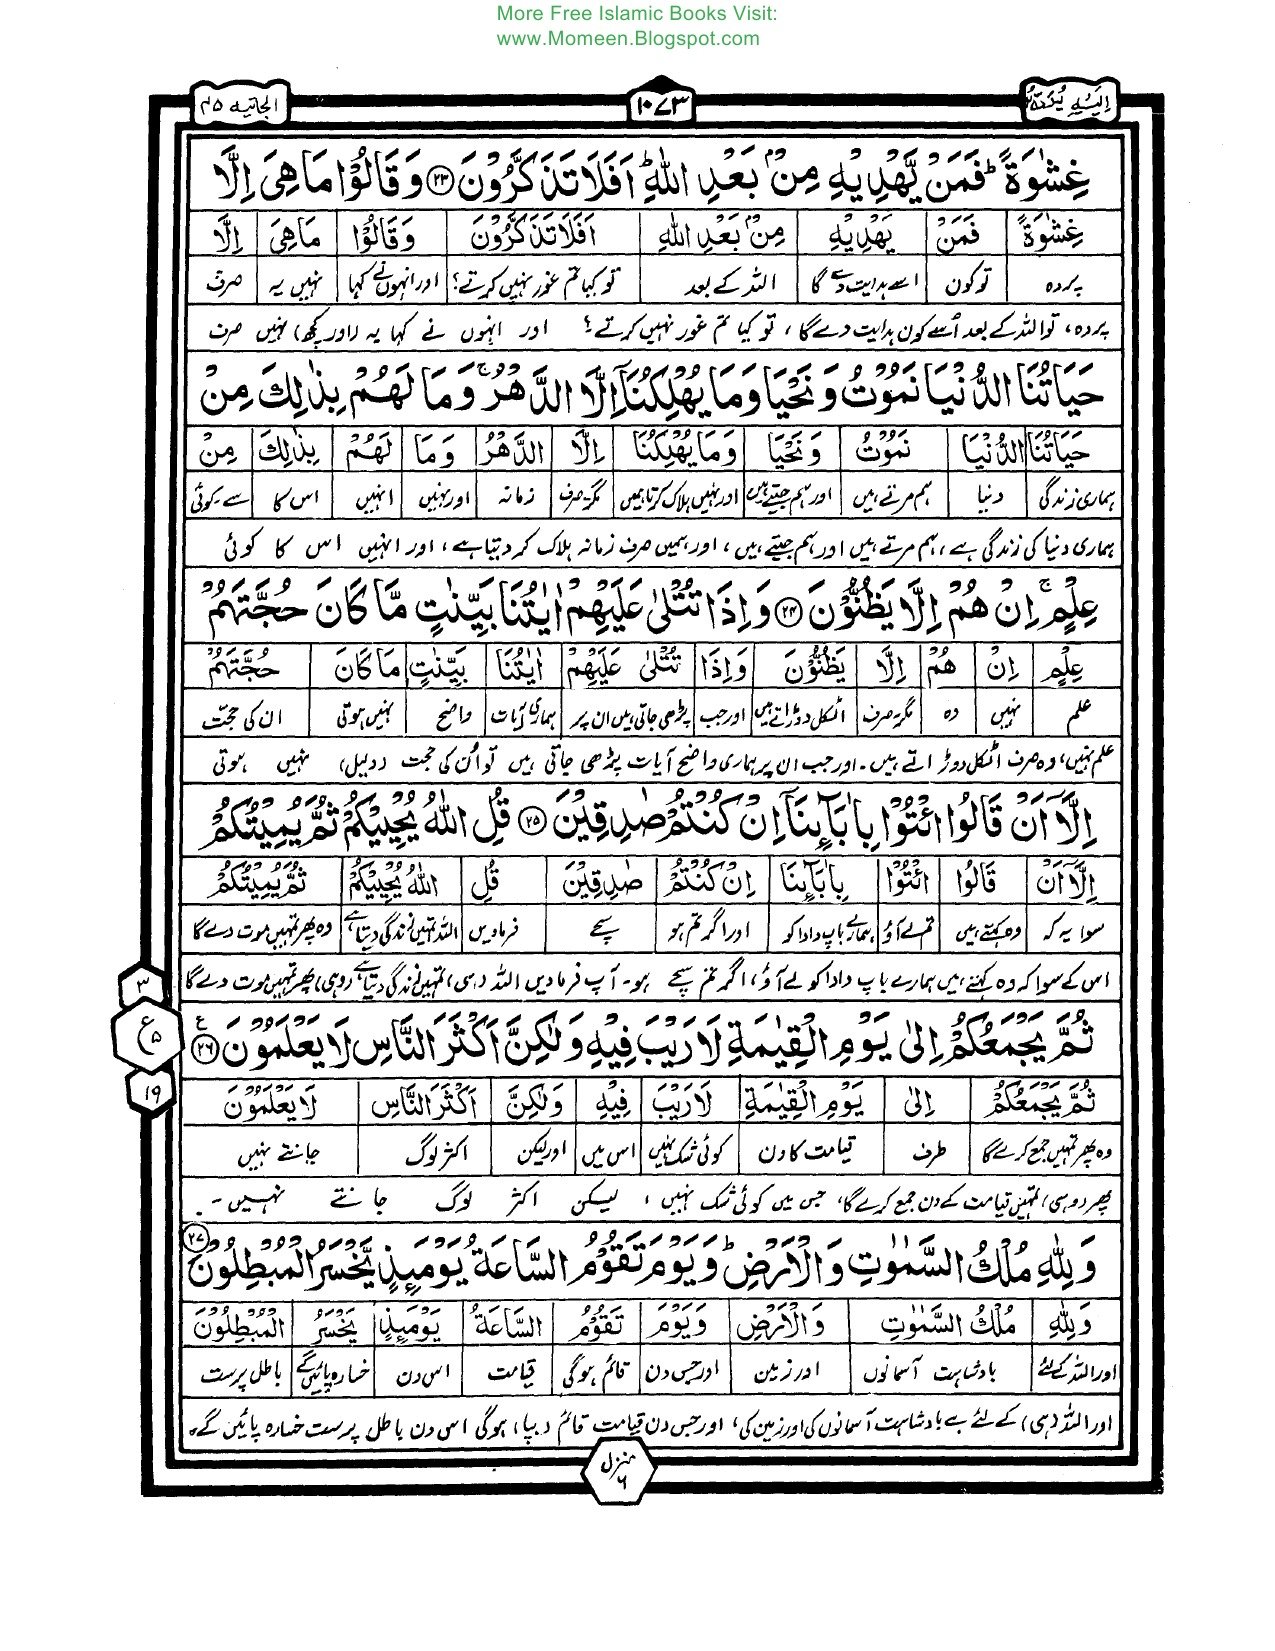 More Free Islamic Books Visit:
www.Momeen.Blogspot.com
الیہ یرد ۱۰۷۳ الجاثیہ ۴۵
غِشٰوَةً ؕ فَمَنْ يَّهْدِيْهِ مِنْۢ بَعْدِ اللّٰهِ ؕ اَفَلَا تَذَكَّرُوْنَ ۲۳ وَقَالُوْا مَا هِيَ اِلَّا
غِشٰوَةً فَمَنْ يَهْدِيْهِ مِنْۢ بَعْدِ اللّٰهِ اَفَلَا تَذَكَّرُوْنَ وَقَالُوْا مَا هِيَ اِلَّا
پردہ تو کون اسے ہدایت دے گا اللہ کے بعد تو کیا تم غور نہیں کرتے؟ اور انہوں نے کہا نہیں یہ صرف
پردہ، تو اللہ کے بعد اُسے کون ہدایت دے گا، تو کیا تم غور نہیں کرتے؟ اور انہوں نے کہا یہ (اور کچھ) نہیں صرف
حَيَاتُنَا الدُّنْيَا نَمُوْتُ وَنَحْيَا وَمَا يُهْلِكُنَاۤ اِلَّا الدَّهْرُ ۚ وَمَا لَهُمْ بِذٰلِكَ مِنْ
حَيَاتُنَا الدُّنْيَا نَمُوْتُ وَنَحْيَا وَمَا يُهْلِكُنَا اِلَّا الدَّهْرُ وَمَا لَهُمْ بِذٰلِكَ مِنْ
ہماری زندگی دنیا ہم مرتے ہیں اور ہم جیتے ہیں اور نہیں ہلاک کرتا ہمیں مگر صرف زمانہ اور نہیں انہیں اس کا سے۔ کوئی
ہماری دنیا کی زندگی ہے، ہم مرتے ہیں اور ہم جیتے ہیں، اور ہمیں صرف زمانہ ہلاک کر دیتا ہے، اور انہیں اس کا کوئی
عِلْمٍ ۚ اِنْ هُمْ اِلَّا يَظُنُّوْنَ ۲۴ وَاِذَا تُتْلٰى عَلَيْهِمْ اٰيٰتُنَا بَيِّنٰتٍ مَّا كَانَ حُجَّتَهُمْ
عِلْمٍ اِنْ هُمْ اِلَّا يَظُنُّوْنَ وَاِذَا تُتْلٰى عَلَيْهِمْ اٰيٰتُنَا بَيِّنٰتٍ مَا كَانَ حُجَّتَهُمْ
علم نہیں وہ مگر صرف اٹکل دوڑاتے ہیں اور جب پڑھی جاتی ہیں ان پر ہماری آیات واضح نہیں ہوتی ان کی حجت
علم نہیں، وہ صرف اٹکل دوڑاتے ہیں۔ اور جب ان پر ہماری واضح آیات پڑھی جاتی ہیں تو اُن کی حجت (دلیل) نہیں ہوتی
اِلَّاۤ اَنْ قَالُوا ائْتُوْا بِاٰبَآئِنَاۤ اِنْ كُنْتُمْ صٰدِقِيْنَ ۲۵ قُلِ اللّٰهُ يُحْيِيْكُمْ ثُمَّ يُمِيْتُكُمْ
اِلَّاۤ اَنْ قَالُوا ائْتُوْا بِاٰبَآئِنَا اِنْ كُنْتُمْ صٰدِقِيْنَ قُلِ اللّٰهُ يُحْيِيْكُمْ ثُمَّ يُمِيْتُكُمْ
سوا یہ کہ وہ کہتے ہیں تم لے آؤ ہمارے باپ دادا کو اور اگر تم ہو سچے فرمادیں اللہ تمہیں زندگی دیتا ہے وہ پھر تمہیں موت دے گا
اس کے سوا کہ وہ کہتے ہیں ہمارے باپ دادا کو لے آؤ، اگر تم سچے ہو۔ آپ فرمادیں اللہ (ہی) تمہیں زندگی دیتا ہے (وہی) پھر تمہیں موت دے گا
۳
ع ۵
۱۹
ثُمَّ يَجْمَعُكُمْ اِلٰى يَوْمِ الْقِيٰمَةِ لَا رَيْبَ فِيْهِ وَلٰكِنَّ اَكْثَرَ النَّاسِ لَا يَعْلَمُوْنَ ۲۶ ع
ثُمَّ يَجْمَعُكُمْ اِلٰى يَوْمِ الْقِيٰمَةِ لَا رَيْبَ فِيْهِ وَلٰكِنَّ اَكْثَرَ النَّاسِ لَا يَعْلَمُوْنَ
وہ پھر تمہیں جمع کرے گا طرف قیامت کا دن کوئی شک نہیں اس میں اور لیکن اکثر لوگ جانتے نہیں
پھر (وہی) تمہیں قیامت کے دن جمع کرے گا، جس میں کوئی شک نہیں، لیکن اکثر لوگ جانتے نہیں۔
وَلِلّٰهِ مُلْكُ السَّمٰوٰتِ وَالْاَرْضِ ؕ وَيَوْمَ تَقُوْمُ السَّاعَةُ يَوْمَئِذٍ يَّخْسَرُ الْمُبْطِلُوْنَ ۲۷
وَلِلّٰهِ مُلْكُ السَّمٰوٰتِ وَالْاَرْضِ وَيَوْمَ تَقُوْمُ السَّاعَةُ يَوْمَئِذٍ يَخْسَرُ الْمُبْطِلُوْنَ
اور اللہ کے لئے بادشاہت آسمانوں اور زمین اور جس دن قائم ہوگی قیامت اس دن خسارہ پائیں گے باطل پرست
اور اللہ (ہی) کے لئے ہے بادشاہت آسمانوں کی اور زمین کی، اور جس دن قیامت قائم (بپا) ہوگی اس دن باطل پرست خسارہ پائیں گے۔
منزل ۶